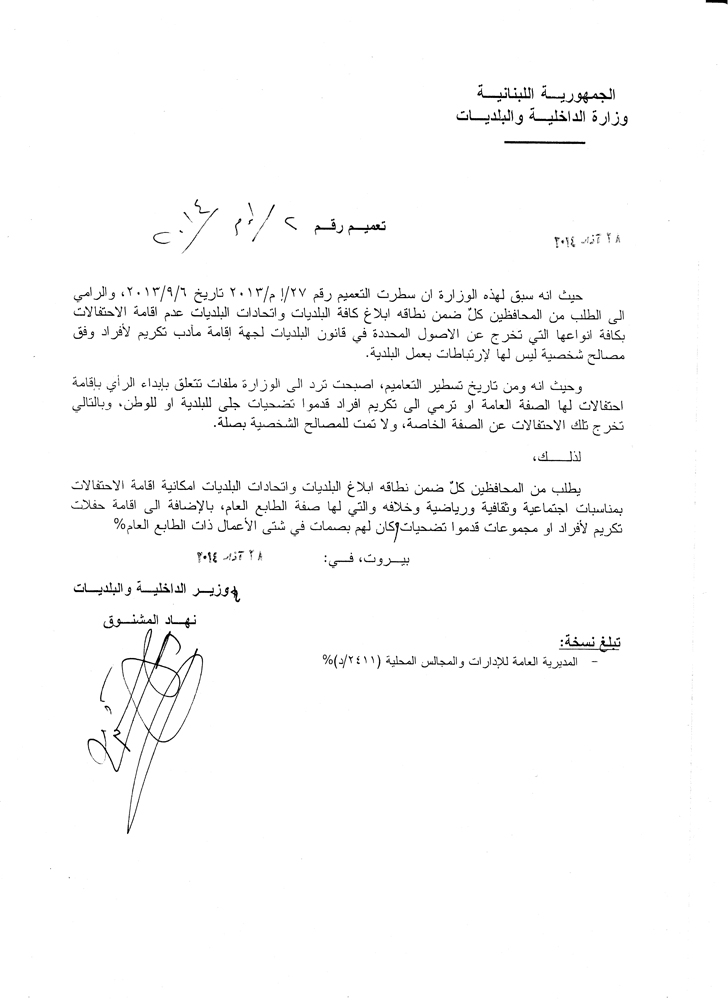 الجمهوريـــة اللبنانيـــة
وزارة الداخليـــة والبلديـــات
٢٨ آذار ٢٠١٤
تعميـم رقـم ٢ /إ م/ ٢٠١٤
حيث انه سبق لهذه الوزارة ان سطرت التعميم رقم ٢٧/إ م/٢٠١٣ تاريخ ٢٠١٣/٩/٦، والرامي
الى الطلب من المحافظين كلّ ضمن نطاقه ابلاغ كافة البلديات واتحادات البلديات عدم اقامة الاحتفالات
بكافة انواعها التي تخرج عن الاصول المحددة في قانون البلديات لجهة إقامة مأدب تكريم لأفراد وفق
مصالح شخصية ليس لها لإرتباطات بعمل البلدية.
وحيث انه ومن تاريخ تسطير التعاميم، اصبحت ترد الى الوزارة ملفات تتعلق بإبداء الرأي بإقامة
احتفالات لها الصفة العامة او ترمي الى تكريم افراد قدموا تضحيات جلى للبلدية او للوطن، وبالتالي
تخرج تلك الاحتفالات عن الصفة الخاصة، ولا تمت للمصالح الشخصية بصلة.
لذلـــــك،
يطلب من المحافظين كلّ ضمن نطاقه ابلاغ البلديات واتحادات البلديات امكانية اقامة الاحتفالات
بمناسبات اجتماعية وثقافية ورياضية وخلافه والتي لها صفة الطابع العام، بالإضافة الى اقامة حفلات
تكريم لأفراد او مجموعات قدموا تضحيات وكان لهم بصمات في شتى الأعمال ذات الطابع العام%
بيروت، فـي: ٢٨ آذار ٢٠١٤
وزيـر الداخليـة والبلديـــات
نهـاد المشنـــوق
تبلغ نسخة:
- المديرية العامة للإدارات والمجالس المحلية (٢٤١١/د)%